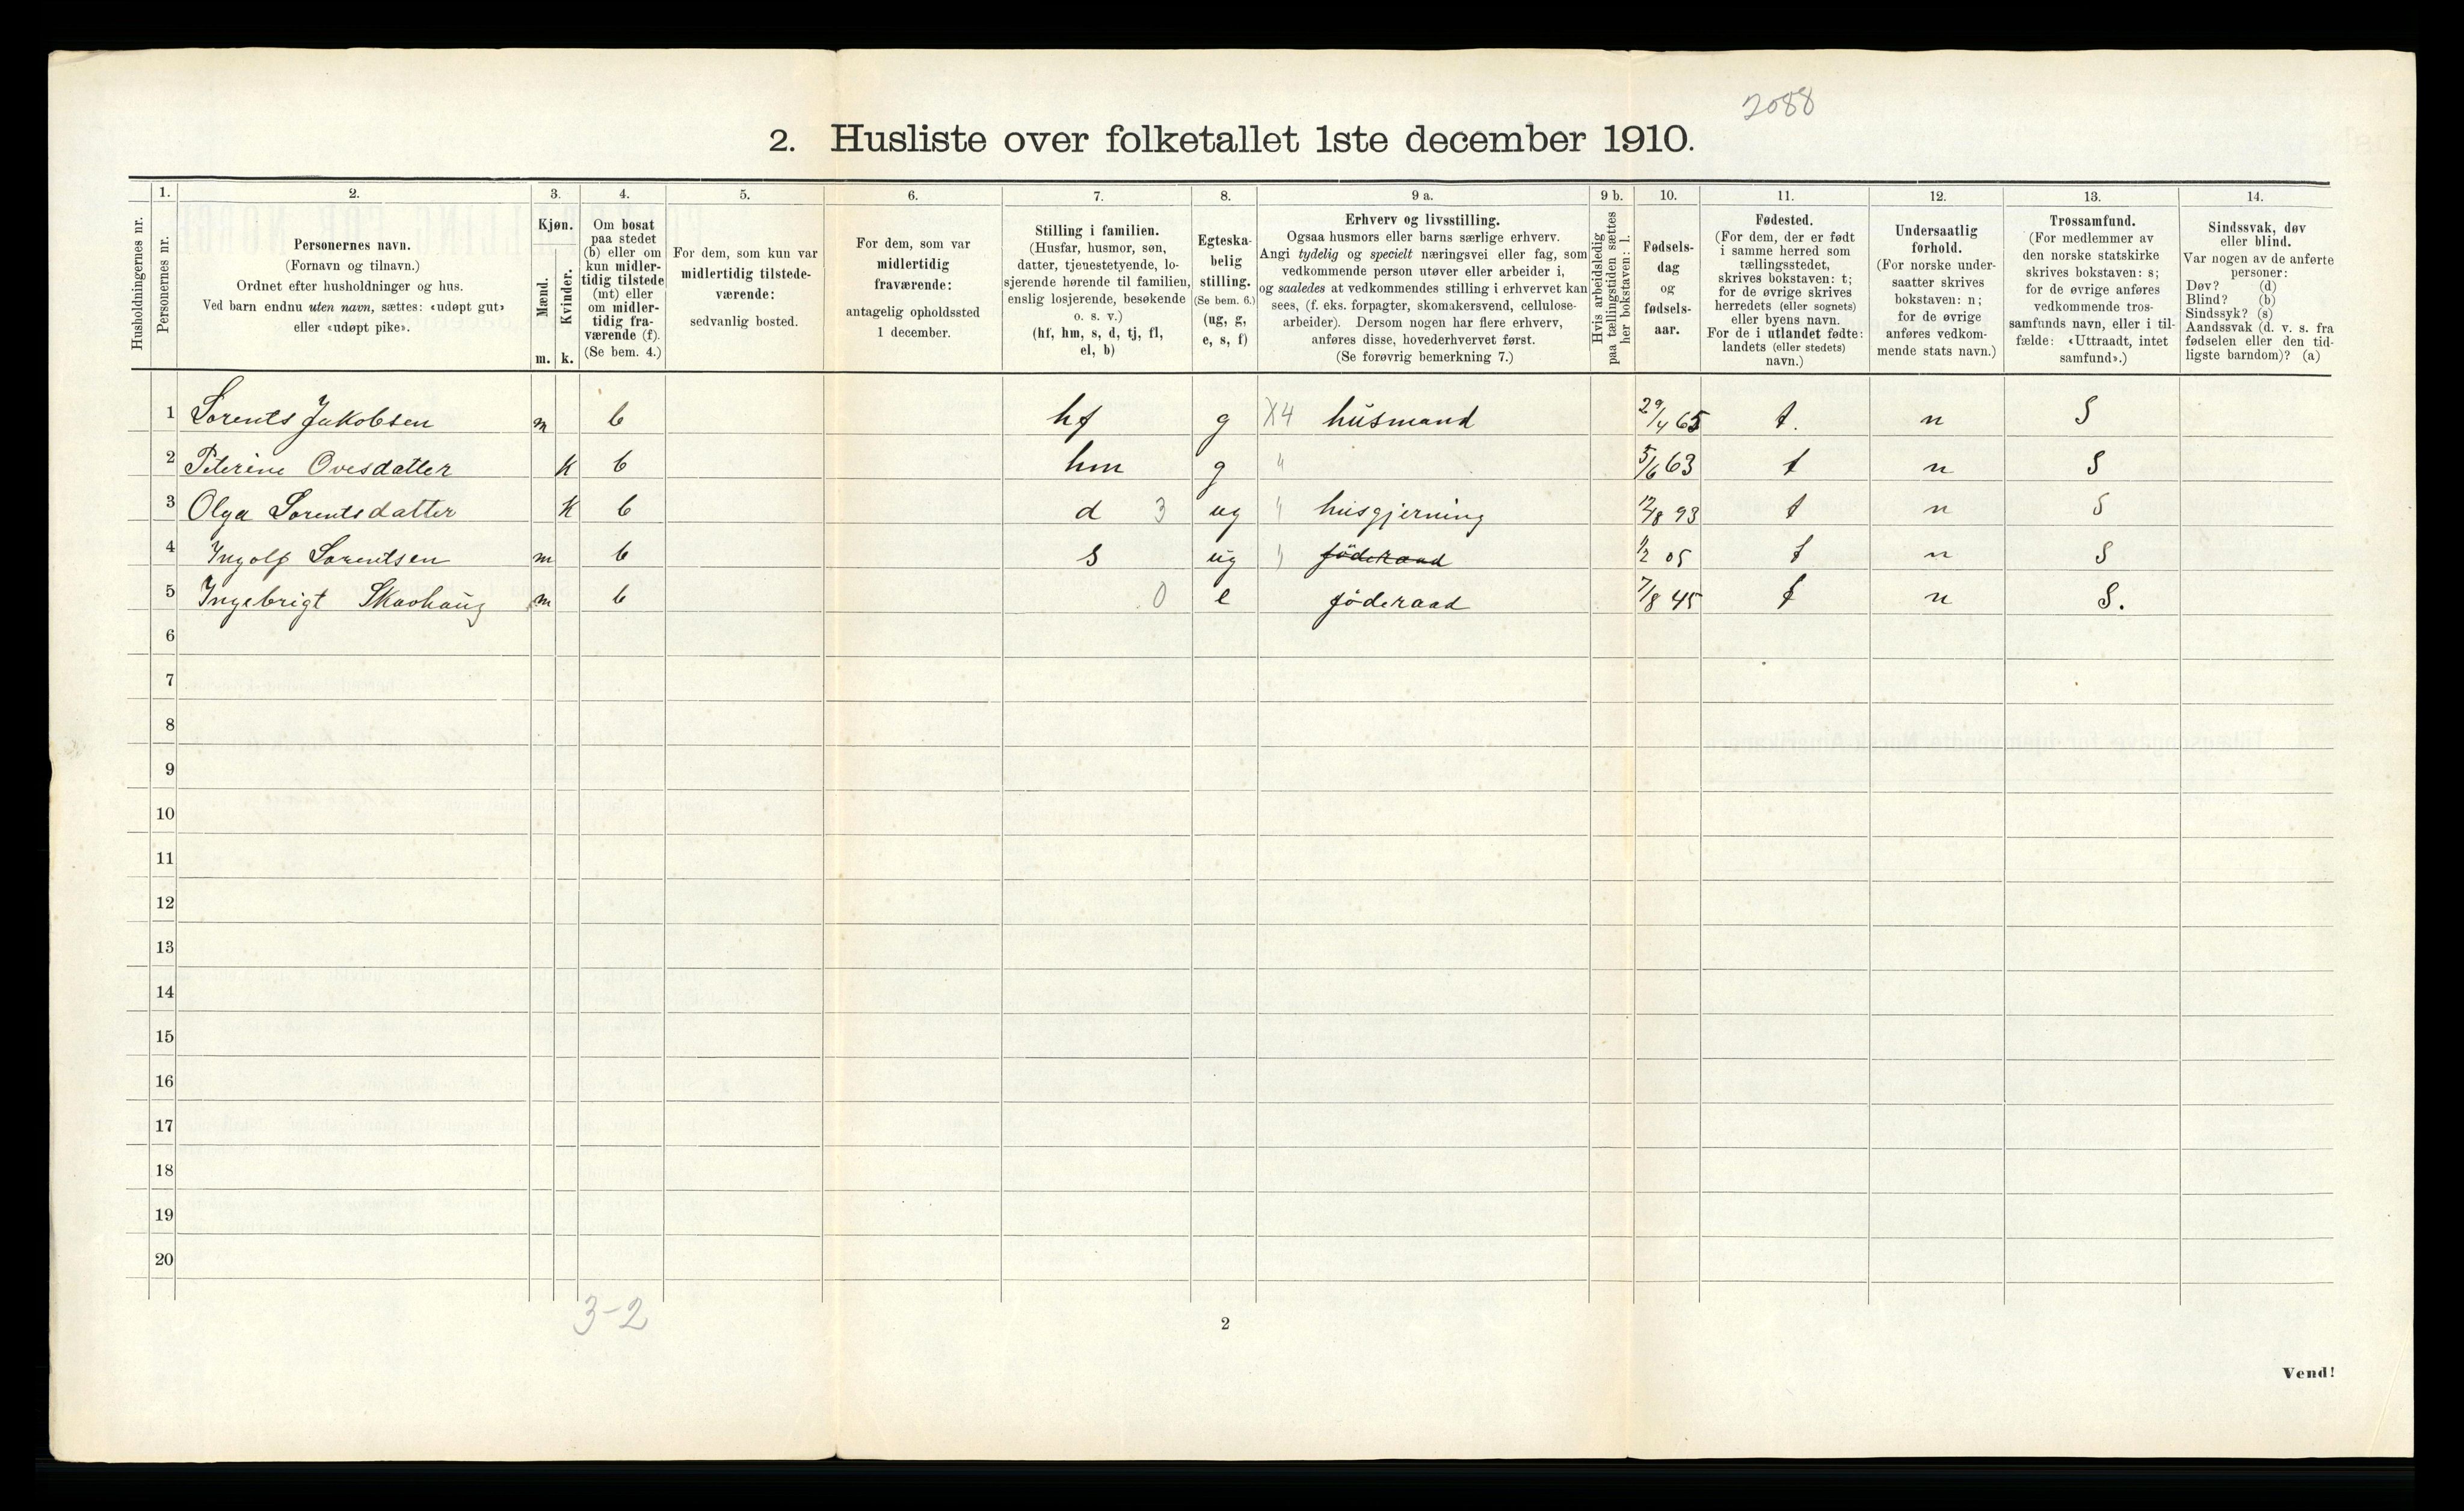 2088
2. Husliste over folketallet 1ste december 1910.
Husholdningernes nr.
1.
Personernes nr.
2.
Personernes navn.
(Fornavn og tilnavn.)
Ordnet efter husholdninger og hus.
Ved barn endnu uten navn, sættes: «udøpt gut»
eller «udøpt pike».
3.
Kjøn.
Mænd.
m.
Kvinder.
k.
4.
Om bosat
paa stedet
(b) eller om
kun midler-
tidig tilstede
(mt) eller
om midler-
tidig fra-
værende (f).
(Se bem. 4.)
5.
For dem, som kun var
midlertidig tilstede-
værende:
sedvanlig bosted.
6.
For dem, som var
midlertidig
fraværende:
antagelig opholdssted
1 december.
7.
Stilling i familien.
(Husfar, husmor, søn,
datter, tjenestetyende, lo-
sjerende hørende til familien,
enslig losjerende, besøkende
o. s. v.)
(hf, hm, s, d, tj, fl,
el, b)
8.
Egteska-
belig
stilling.
(Se bem. 6.)
(ug, g,
e, s, f)
9 a.
Erhverv og livsstilling.
Ogsaa husmors eller barns særlige erhverv.
Angi tydelig og specielt næringsvei eller fag, som
vedkommende person utøver eller arbeider i,
og saaledes at vedkommendes stilling i erhvervet kan
sees, (f. eks. forpagter, skomakersvend, cellulose-
arbeider). Dersom nogen har flere erhverv,
anføres disse, hovederhvervet først.
(Se forøvrig bemerkning 7.)
9 b.
Hvis arbeidsledig
paa tællingstiden sættes
her bokstaven: l.
10.
Fødsels-
dag
og
fødsels-
aar.
11.
Fødested.
(For dem, der er født
i samme herred som
tællingsstedet,
skrives bokstaven: t;
for de øvrige skrives
herredets (eller sognets)
eller byens navn.
For de i utlandet fødte:
landets (eller stedets)
navn.)
12.
Undersaatlig
forhold.
(For norske under-
saatter skrives
bokstaven: n;
for de øvrige
anføres vedkom-
mende stats navn.)
13.
Trossamfund.
(For medlemmer av
den norske statskirke
skrives bokstaven: s;
for de øvrige anføres
vedkommende tros-
samfunds navn, eller i til-
fælde: «Uttraadt, intet
samfund».)
14.
Sindssvak, døv
eller blind.
Var nogen av de anførte
personer:
Døv? (d)
Blind? (b)
Sindssyk? (s)
Aandssvak (d. v. s. fra
fødselen eller den tid-
ligste barndom)? (a)
1 Lorents Jakobsen m b hf g X4 husmand 29/4 65 t. n S
2 Peterine Ovesdatter k b hm g " 5/6 63 t n S
3 Olga Lorentsdatter k b d 3 ug " husgjerning 12/8 93 t n S
4 Ingolf Lorentsen m b s ug " föderaad 1/2 05 t n S
5 Ingebrigt Skavhaug m b 0 e föderaad 7/8 45 t n S.
6
7
8
9
10
11
12
13
14
15
16
17
18
19
20
3-2
2
Vend!